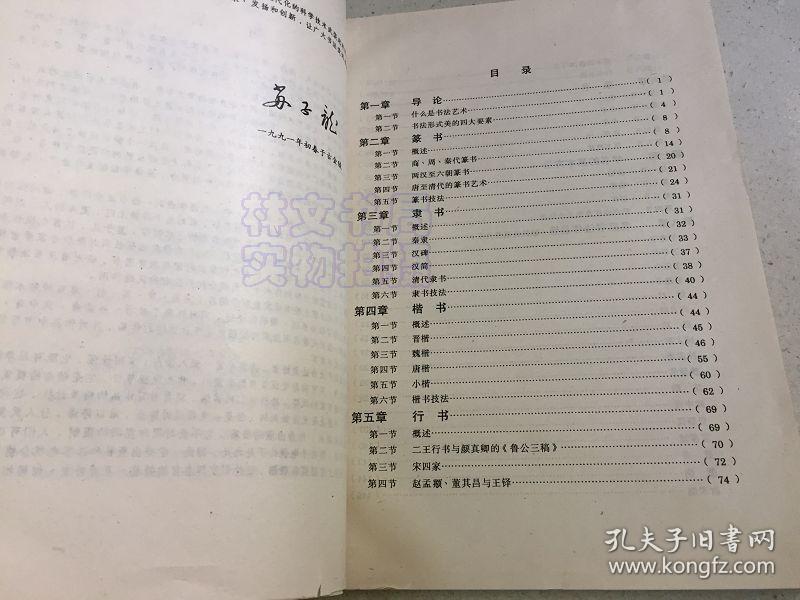 代化的科学技术
发扬和创新,让广大书法
苏子龙
一九九一年初春于古金城
目录
第一章 导论 (1)
第一节 什么是书法艺术 (1)
第二节 书法形式美的四大要素 (4)
第二章 篆书 (8)
第一节 概述 (8)
第二节 商、周、秦代篆书 (14)
第三节 两汉至六朝篆书 (20)
第四节 唐至清代的篆书艺术 (21)
第五节 篆书技法 (24)
第三章 隶书 (31)
第一节 概述 (31)
第二节 秦隶 (32)
第三节 汉碑 (33)
第四节 汉简 (37)
第五节 清代隶书 (38)
第六节 隶书技法 (40)
第四章 楷书 (44)
第一节 概述 (44)
第二节 晋楷 (45)
第三节 魏楷 (46)
第四节 唐楷 (55)
第五节 小楷 (60)
第六节 楷书技法 (62)
第五章 行书 (69)
第一节 概述 (69)
第二节 二王行书与颜真卿的《鲁公三稿》 (70)
第三节 宋四家 (72)
第四节 赵孟頫、董其昌与王铎 (74)
林文书店
实物拍摄
孔夫子旧书网
www.kongfz.com